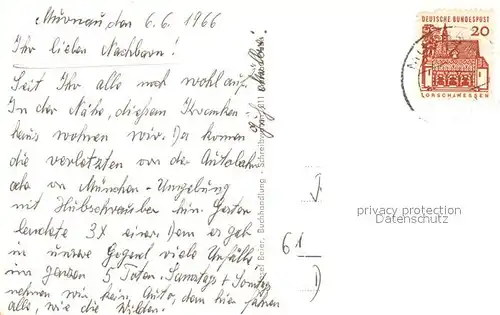 Murnau, den 6.6.1966
Ihr lieben Nachbarn!
Seit Ihr alle noch wohlauf.
In der Nähe, diesem Kranken
haus wohnen wir. Da kommen
die verletzten von der Autobahn
oda von München-Umgebung
mit Hubschrauber hin. Gestern
landete 3x einer. Denn es gab
in unsere Gegend viele Unfälle
im ganzen 5 Toten. Samstags + Sonntag
nehmen wir kein Auto, denn hier fahren
alle, wie die Wilden.
Beier, Buchhandlung - Schreib
DEUTSCHE BUNDESPOST
20
LORSCH/HESSEN
61
privacy protection
Datenschutz